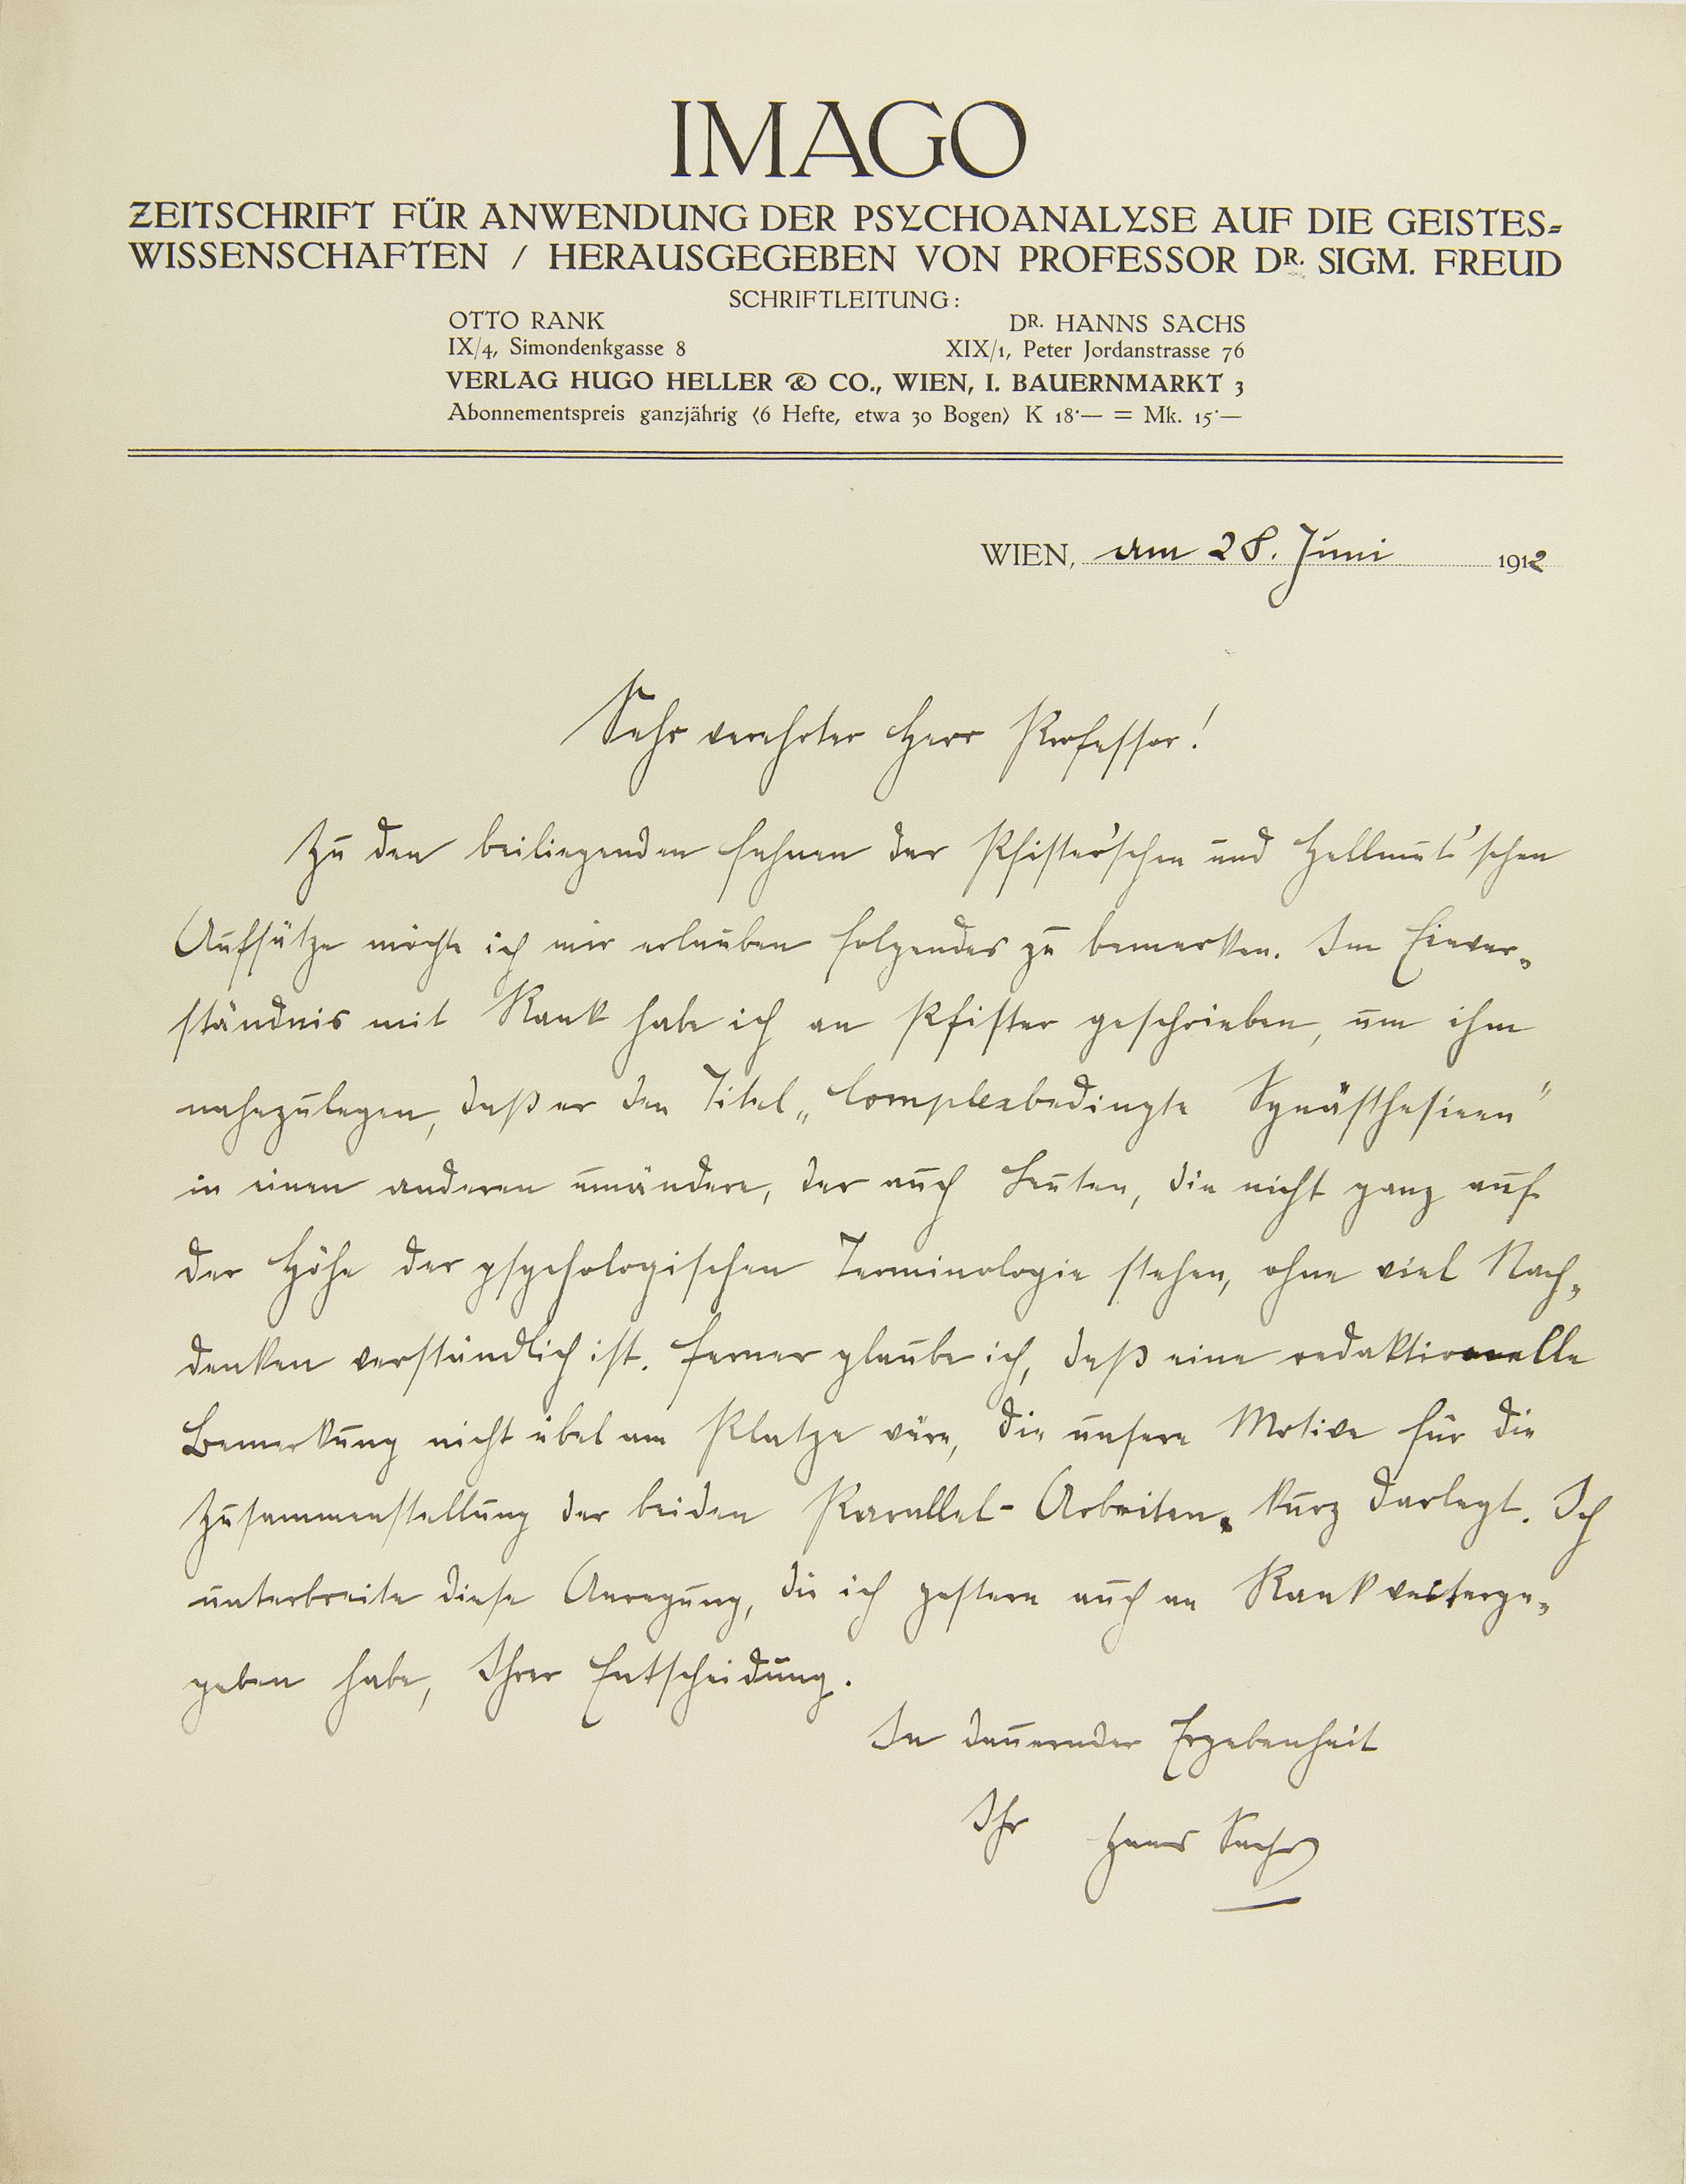 IMAGO
ZEITSCHRIFT FÜR ANWENDUNG DER PSYCHOANALYSE AUF DIE GEISTES-
WISSENSCHAFTEN / HERAUSGEGEBEN VON PROFESSOR DR. SIGM. FREUD
SCHRIFTLEITUNG:
OTTO RANK DR. HANNS SACHS
IX/4, Simondenkgasse 8 XIX/1, Peter Jordanstrasse 76
VERLAG HUGO HELLER & CO., WIEN, I. BAUERNMARKT 3
Abonnementspreis ganzjährig (6 Hefte, etwa 30 Bogen) K 18·— = Mk. 15·—
WIEN, am 28. Juni 1912
Sehr verehrter Herr Professor!
Zu den beiliegenden Fahnen der Pfister'schen und Hellmut'schen
Aufsätze möchte ich mir erlauben folgendes zu bemerken. Im Einver-
ständnis mit Rank habe ich an Pfister geschrieben, um ihm
nahezulegen, daß er den Titel „Complexbedingte Synästhesieen"
in einen anderen umändere, der auch Leuten, die nicht ganz auf
der Höhe der psychologischen Terminologie stehen, ohne viel Nach-
denken verständlich ist. Ferner glaube ich, daß eine redaktionelle
Bemerkung nicht übel am Platze wäre, die unsere Motive für die
Zusammenstellung der beiden Parallel-Arbeiten kurz darlegt. Ich
unterbreite diese Anregung, die ich gestern auch an Rank weiterge-
geben habe, Ihrer Entscheidung.
In dauernder Ergebenheit
Ihr Hanns Sachs